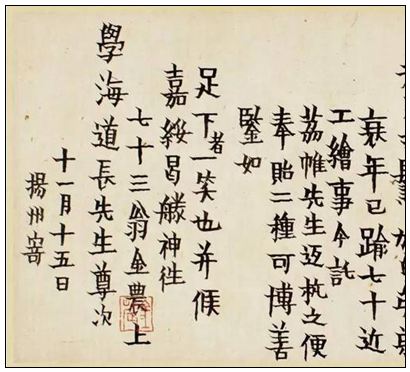 衰年已踰七十近
工繪事今託
荔帷先生杭之便
奉貽二種可博善
鑒如
足下者一笑也并候
嘉綏曷勝神徃
七十三翁金農上
學海道長先生尊次
十一月十五日
揚州寄